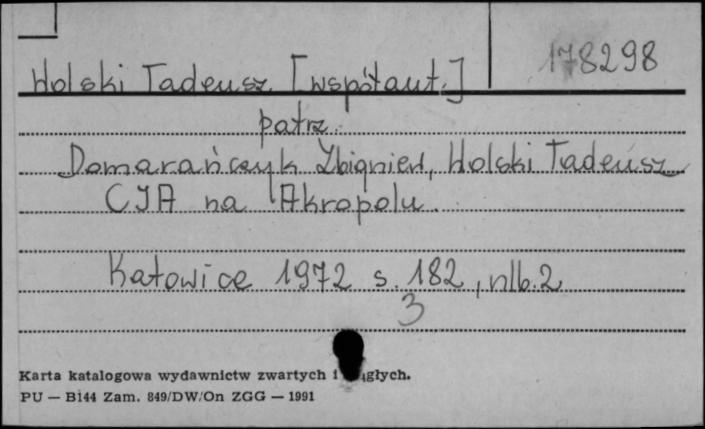 178298
Wolski Tadeusz [współaut.]
patrz.
Domarańczyk Zbigniew, Wolski Tadeusz
CIA na Akropolu.
Katowice 1972 s. 182, nlb. 2
3
Karta katalogowa wydawnictw zwartych i
PU — B144 Zam. 849/DW/On ZGG — 1991